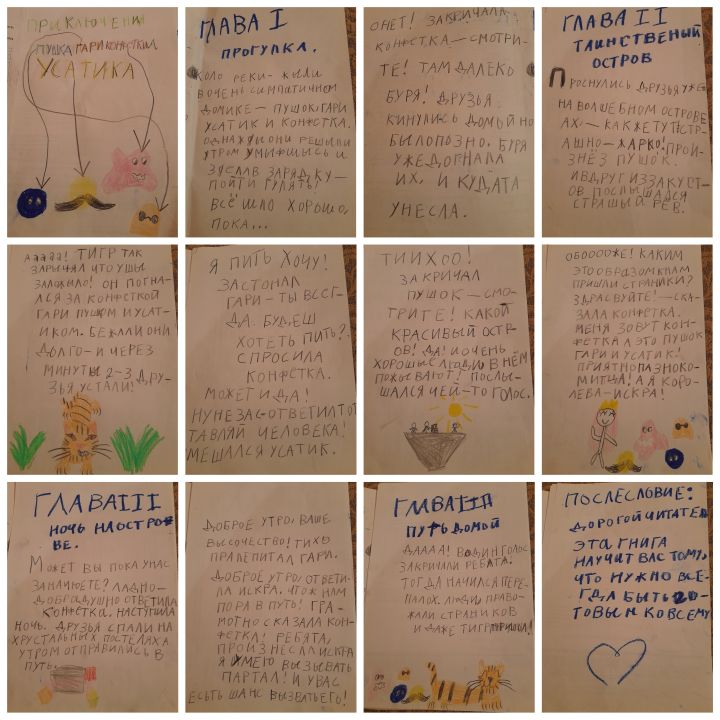 ПРИКЛЮЧЕНИЯ
ПУШКА ГАРИ КОНФЕТКИ
УСАТИКА
ГЛАВА I
ПРОГУЛКА.
КОЛО РЕКИ-ЖИЛИ
В ОЧЕНЬ СИМПАТИЧНОМ
ДОМИКЕ— ПУШОК, ГАРИ
УСАТИК И КОНФЕТКА.
ОДНАЖДЫ ОНИ РЕШИЛИ
УТРОМ УМЫВШЫСЬ И
ЗДЕЛАВ ЗАРЯДКУ—
ПОЙТИ ГУЛЯТЬ!
ВСЁ ШЛО ХОРОШО,
ПОКА...
О НЕТ! ЗАКРИЧАЛА
КОНФЕТКА—СМОТРИ-
ТЕ! ТАМ ДАЛЕКО
БУРЯ! ДРУЗЬЯ
КИНУЛИСЬ ДОМОЙ НО
БЫЛО ПОЗНО. БУРЯ
УЖЕ ДОГНАЛА
ИХ, И КУДА ТА
УНЕСЛА.
ГЛАВА II
ТАИНСТВЕНЫЙ
ОСТРОВ
ПРОСНУЛИСЬ ДРУЗЬЯ УЖЕ
НА ВОЛШЕБНОМ ОСТРОВЕ
АХ— КАК ЖЕ ТУТ СТР-
АШНО-ЖАРКО! ПРОИ-
ЗНЁЗ ПУШОК.
И ВДРУГ ИЗ ЗА КУСТ-
ОВ ПОСЛЫШАЛСЯ
СТРАШЫЙ РЁВ.
ААААА! ТИГР ТАК
ЗАРЫЧАЛ ЧТО УШЫ
ЗАЛОЖИЛО! ОН ПОГНА-
ЛСЯ ЗА КОНФЕТКОЙ
ГАРИ ПУШКОМ И УСАТ-
ИКОМ. БЕЖАЛИ ОНИ
ДОЛГО-И ЧЕРЕЗ
МИНУТЫ 2-3 ДРУ-
ЗЬЯ УСТАЛИ!
Я ПИТЬ ХОЧУ!
ЗАСТОНАЛ
ГАРИ-ТЫ ВСЕГ-
ДА. БУДЕШ
ХОТЕТЬ ПИТЬ?
СПРОСИЛА
КОНФЕТКА.
МОЖЕТ И ДА!
НУ НЕ ЗАС-ОТВЕТИЛ ТОТ
ТАВЛЯЙ ЧЕЛОВЕКА!
МЕШАЛСЯ УСАТИК.
ТИИХОО!
ЗАКРИЧАЛ
ПУШОК—СМО-
ТРИТЕ! КАКОЙ
КРАСИВЫЙ ОСТР-
ОВ! ДА! И ОЧЕНЬ
ХОРОШЫЕ ЛЮДИ В НЁМ
ПОЖЫВАЮТ! ПОСЛЫ-
ШАЛСЯ ЧЕЙ-ТО ГОЛОС.
ОБООООЖЕ! КАКИМ
ЭТО ОБРАЗОМ К НАМ
ПРИШЛИ СТРАНИКИ?
ЗДРАСВУЙТЕ!—СКА-
ЗАЛА КОНФЕТКА.
МЕНЯ ЗОВУТ КОН-
ФЕТКА А ЭТО ПУШОК
ГАРИ И УСАТИК!
ПРИЯТНО ПАЗНОКО-
МИТЦА! А Я КОРО-
ЛЕВА-ИСКРА!
ГЛАВА III
НОЧЬ НА ОСТРО-
ВЕ.
МОЖЕТ ВЫ ПОКА У НАС
ЗАНАЧЮЕТЕ? ЛАДНО-
ДОБРАДУШНО ОТВЕТИЛА
КОНФЕТКА. НАСТУПИЛА
НОЧЬ. ДРУЗЬЯ СПАЛИ НА
ХРУСТАЛЬНЫХ ПОСТЕЛЯХ А
УТРОМ ОТПРАВИЛИСЬ В
ПУТЬ.
ДОБРОЕ УТРО, ВАШЕ
ВЫСОЧЕСТВО! ТИХО
ПРАЛЕПИТАЛ ГАРИ.
ДОБРОЕ УТРО! ОТВЕТИ-
ЛА ИСКРА. ЧТОЖ НАМ
ПОРА В ПУТЬ! ГРА-
МОТНО СКАЗАЛА КОН-
ФЕТКА! РЕБЯТА,
ПРОИЗНЕСЛА ИСКРА
Я УМЕЮ ВЫЗЫВАТЬ
ПАРТАЛ! И У ВАС
ЕСЬТЬ ШАНС ВЫЗВАТЬ ЕГО!
ПУТЬ ДОМОЙ
ДАААА! В ОДИН ГОЛОС
ЗАКРИЧАЛИ РЕБЯТА.
ТОГДА НАЧИЛСЯ ПЕРЕ-
ПАЛОХ. ЛЮДИ ПРАВО-
ЖАЛИ СТРАНИКОВ
И ДАЖЕ ТИГР ПРИШОЛ!
ПОСЛЕСЛОВИЕ:
ДОРОГОЙ ЧИТАТЕЛ
ЭТА КНИГА
НАУЧИТ ВАС ТОМУ,
ЧТО НУЖНО ВСЕ-
ГДА БЫТЬ ГО-
ТОВЫМ КО ВСЕМУ